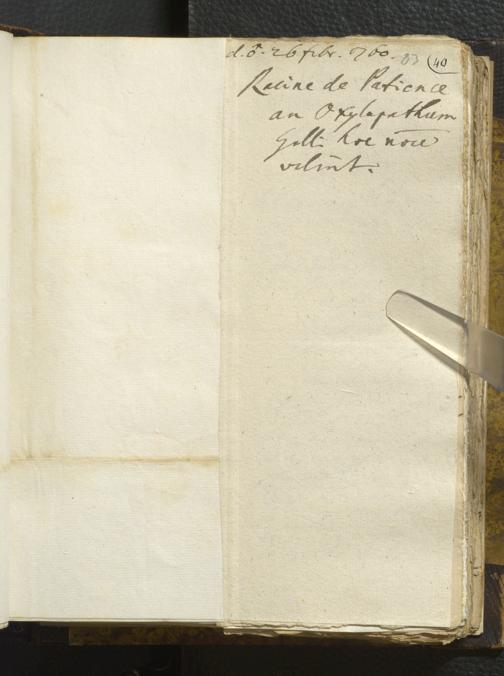 d. 8. 26 febr. 1760. 83 40
Racine de Patience
an Oxylapathum
Galli hoc nōīe
velint.